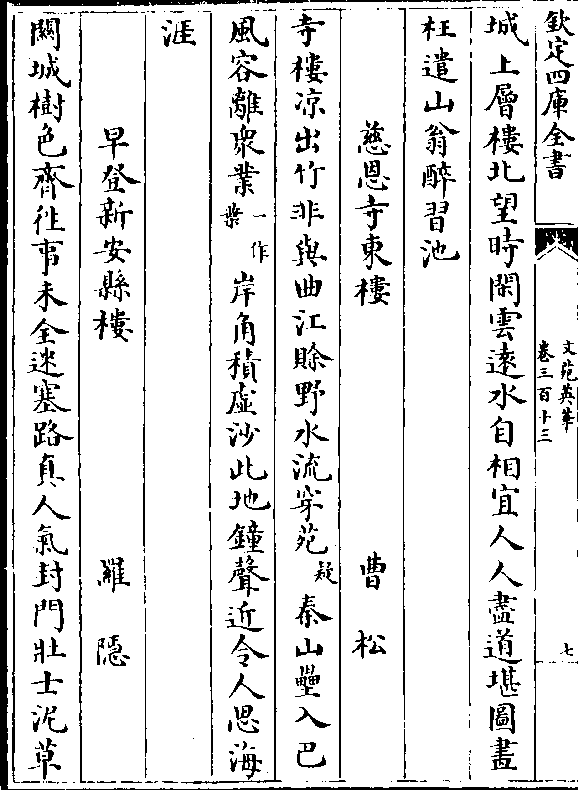 欽定四庫全書
文苑英華
卷三百十三
七
城上層樓北望時閑雲遠水自相宜人人盡道堪圖畫
枉遣山翁醉習池
慈恩寺東樓 曹松
寺樓凉出竹非與曲江賒野水流穿苑疑秦山壘入巴
風容離衆業一作葉岸角積虛沙此地鐘聲近令人思海
涯
早登新安縣樓 羅隱
關城樹色齊徃事未全迷塞路真人氣封門壯士泥草